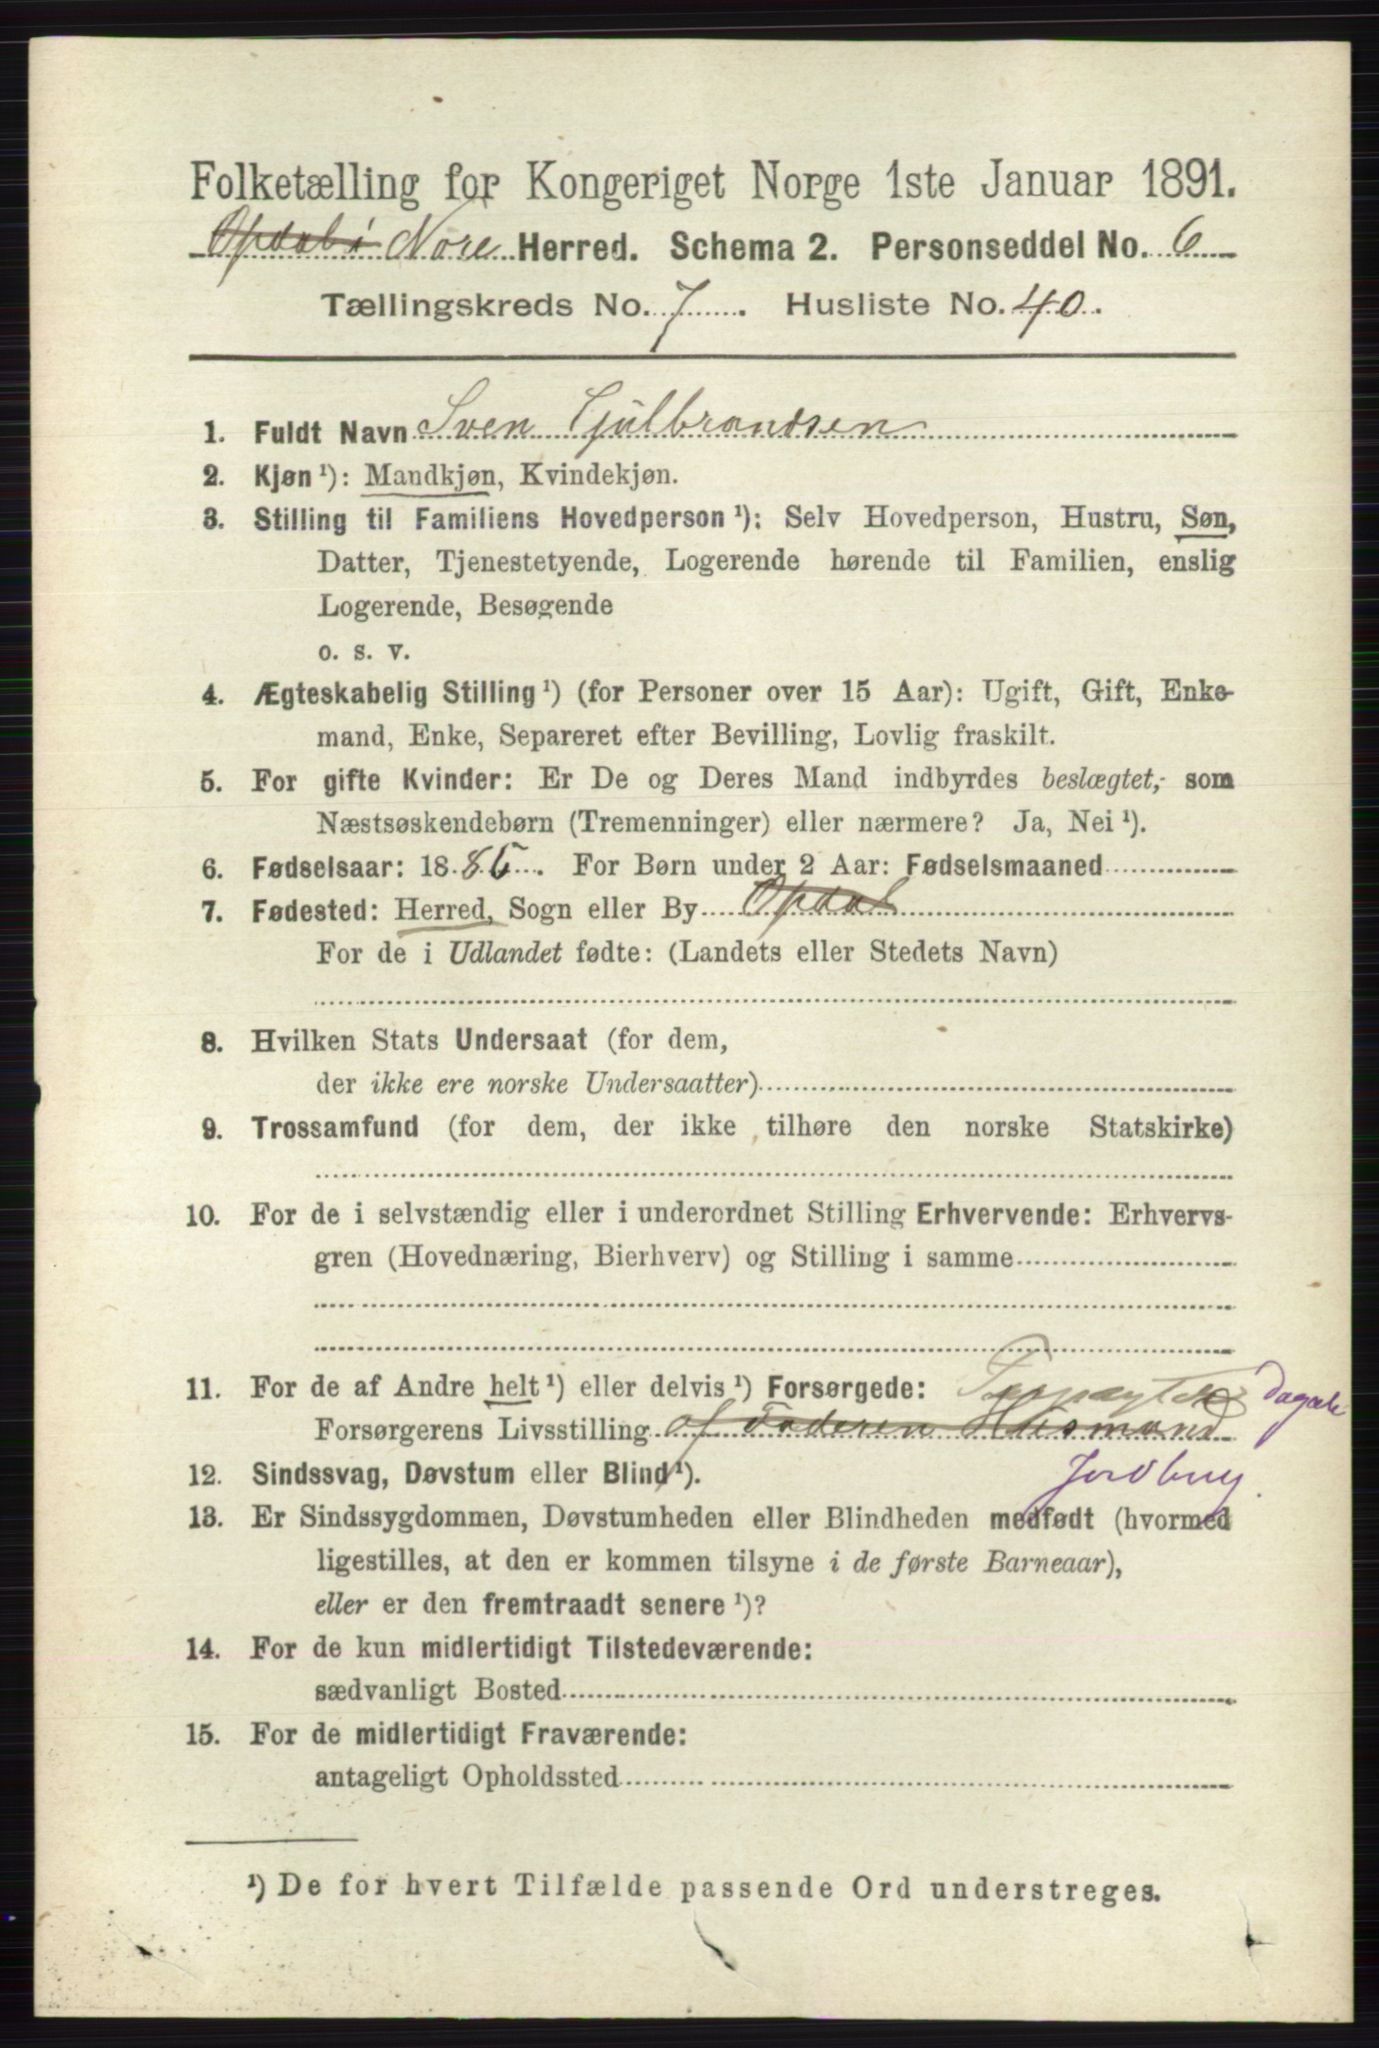 Folketælling for Kongeriget Norge 1ste Januar 1891.
Nore Herred. Schema 2. Personseddel No. 6
Tællingskreds No. 7. Husliste No. 40.
1. Fuldt Navn Sven Gulbrandsen
2. Kjøn ¹): Mandkjøn, Kvindekjøn.
3. Stilling til Familiens Hovedperson ¹): Selv Hovedperson, Hustru, Søn,
Datter, Tjenestetyende, Logerende hørende til Familien, enslig
Logerende, Besøgende
o. s. v.
4. Ægteskabelig Stilling ¹) (for Personer over 15 Aar): Ugift, Gift, Enke-
mand, Enke, Separeret efter Bevilling, Lovlig fraskilt.
5. For gifte Kvinder: Er De og Deres Mand indbyrdes beslægtet, som
Næstsøskendebørn (Tremenninger) eller nærmere? Ja, Nei ¹).
6. Fødselsaar: 1886. For Børn under 2 Aar: Fødselsmaaned
7. Fødested: Herred, Sogn eller By Opdal
For de i Udlandet fødte: (Landets eller Stedets Navn)
8. Hvilken Stats Undersaat (for dem,
der ikke ere norske Undersaatter)
9. Trossamfund (for dem, der ikke tilhøre den norske Statskirke)
10. For de i selvstændig eller i underordnet Stilling Erhvervende: Erhvervs-
gren (Hovednæring, Bierhverv) og Stilling i samme
11. For de af Andre helt ¹) eller delvis ¹) Forsørgede:
Forsørgerens Livsstilling af Faderen Husmand
12. Sindssvag, Døvstum eller Blind ¹). Jordbrug.
13. Er Sindssygdommen, Døvstumheden eller Blindheden medfødt (hvormed
ligestilles, at den er kommen tilsyne i de første Barneaar),
eller er den fremtraadt senere ¹)?
14. For de kun midlertidigt Tilstedeværende:
sædvanligt Bosted
15. For de midlertidigt Fraværende:
antageligt Opholdssted
¹) De for hvert Tilfælde passende Ord understreges.